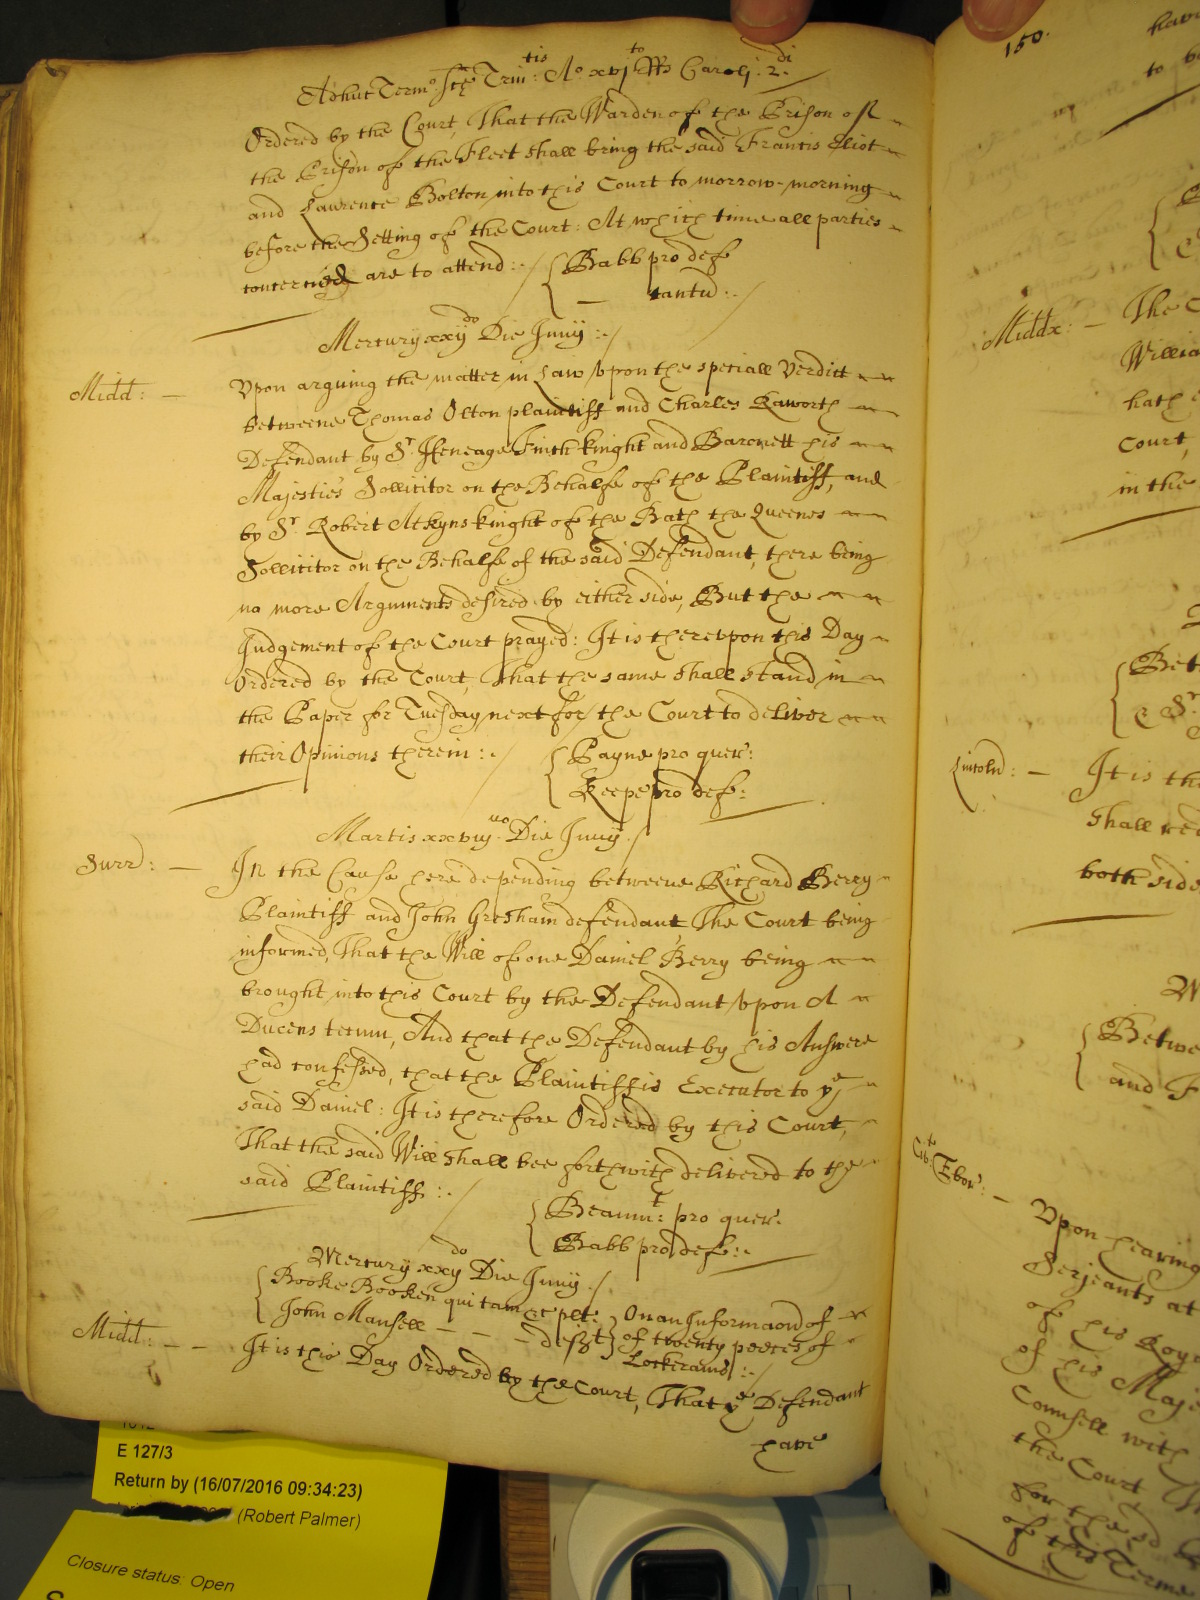 Adhuc Termo. Scē Trin:tis Ao. xvjto RRs Caroli. 2.di
Ordered by the Court, That the Warden of the Prison of
the Prison of the Fleet shall bring the said Francis Eliot
and Laurence Bolton into this Court to morrow-morning
before the Setting of the Court: At which time all parties
concerned are to attend:./ Babb pro def
tantu:.
Mercury xxijdo Die Junij:./
Midd: — Vpon arguing the matter in Law vpon the speciall Verdict
betweene Thomas Olton plaintiff and Charles Kaworth
Defendant by Sr. Heneage Finch knight and Baronett his
Majesties Sollicitor on the Behalfe of the Plaintiff, and
by Sr. Robert Atkyns knight of the Bath the Queenes
Sollicitor on the Behalfe of the said Defendant, there being
no more Arguments desired by either side, But the
Judgement of the Court prayed: It is therevpon this Day
Ordered by the Court, That the same shall stand in
the Paper for Tuesday next for the Court to deliver
their Opinions therein:./ Payne pro quer:
Keepe pro def:
Martis xxviijuo Die Junij./
Surr: — In the Cause here depending betweene Richard Berry
Plaintiff and John Gresham defendant, The Court being
informed, That the Will of one Daniel Berry being
brought into this Court by the Defendant vpon A
Ducens tecum, And that the Defendant by his Answere
had confessed, that the Plaintiff is Executor to ye
said Daniel: It is therefore Ordered by this Court,
That the said Will shall bee forthwith delivered to the
said Plaintiff:./
Beaumt: pro quer.
Babb pro def:.
Mercury xxijdo Die Junij./
Booke Booken qui tam &c plt: On an Informacōn of
John Mansell - - - defᵗ of twenty peeces of
Lockerams:./
Midd: — It is this Day Ordered by the Court, That ye Defendant
have
150.
hav
to
Middx: — The C
Willia
hath
Court,
in the
Bet
& Sr.
Lincoln: — It is th
shall
both side
M
Betwe
and F
Cit. Ebor: —
Vpon hearing
Serjeants at
of his Roya
of his Maje
Counsell with
the Court
for the sd
of this Terme
E 127/3
Return by (16/07/2016 09:34:23)
(Robert Palmer)
Closure status: Open